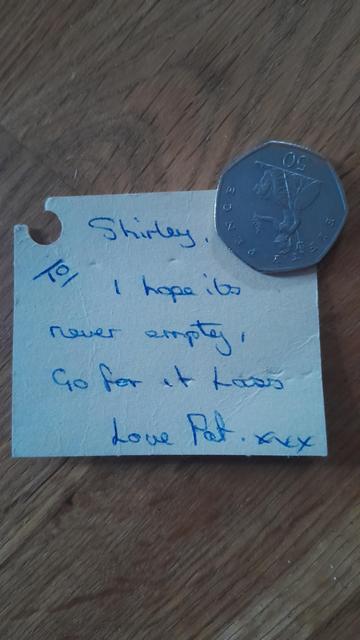 50
PENCE
To Shirley,
I hope its
never empty,
Go for it Lass
Love Pat. xxx